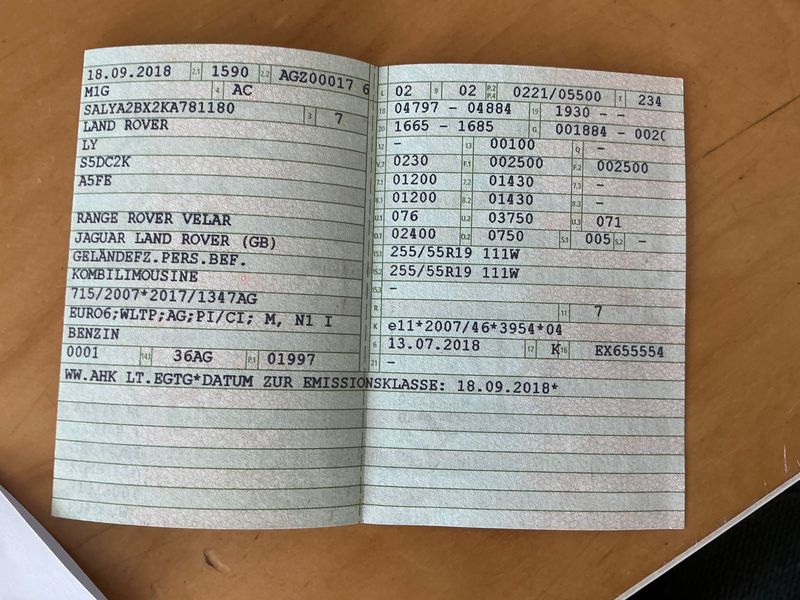 18.09.2018 2.1 1590 2.2 AGZ00017 6
M1G 4 AC
SALYA2BX2KA781180 3 7
LAND ROVER
LY
S5DC2K
A5FE
RANGE ROVER VELAR
JAGUAR LAND ROVER (GB)
GELÄNDEFZ.PERS.BEF.
KOMBILIMOUSINE
715/2007*2017/1347AG
EURO6;WLTP;AG;PI/CI; M, N1 I
BENZIN
0001 14.1 36AG P.1 01997
WW.AHK LT.EGTG*DATUM ZUR EMISSIONSKLASSE: 18.09.2018*
L 02 9 02 P.2 P.4 0221/05500 T 234
18 04797 - 04884 19 1930 - -
20 1665 - 1685 G 001884 -
12 - 13 00100 Q -
V.7 0230 F.1 002500 F.2 002500
7.1 01200 7.2 01430 7.3 -
8.1 01200 8.2 01430 8.3 -
U.1 076 U.2 03750 U.3 071
O.1 02400 O.2 0750 S.1 005 S.2 -
15.1 255/55R19 111W
15.2 255/55R19 111W
15.3 -
R 11 7
K e11*2007/46*3954*04
6 13.07.2018 17 K 16 EX655554
21 -